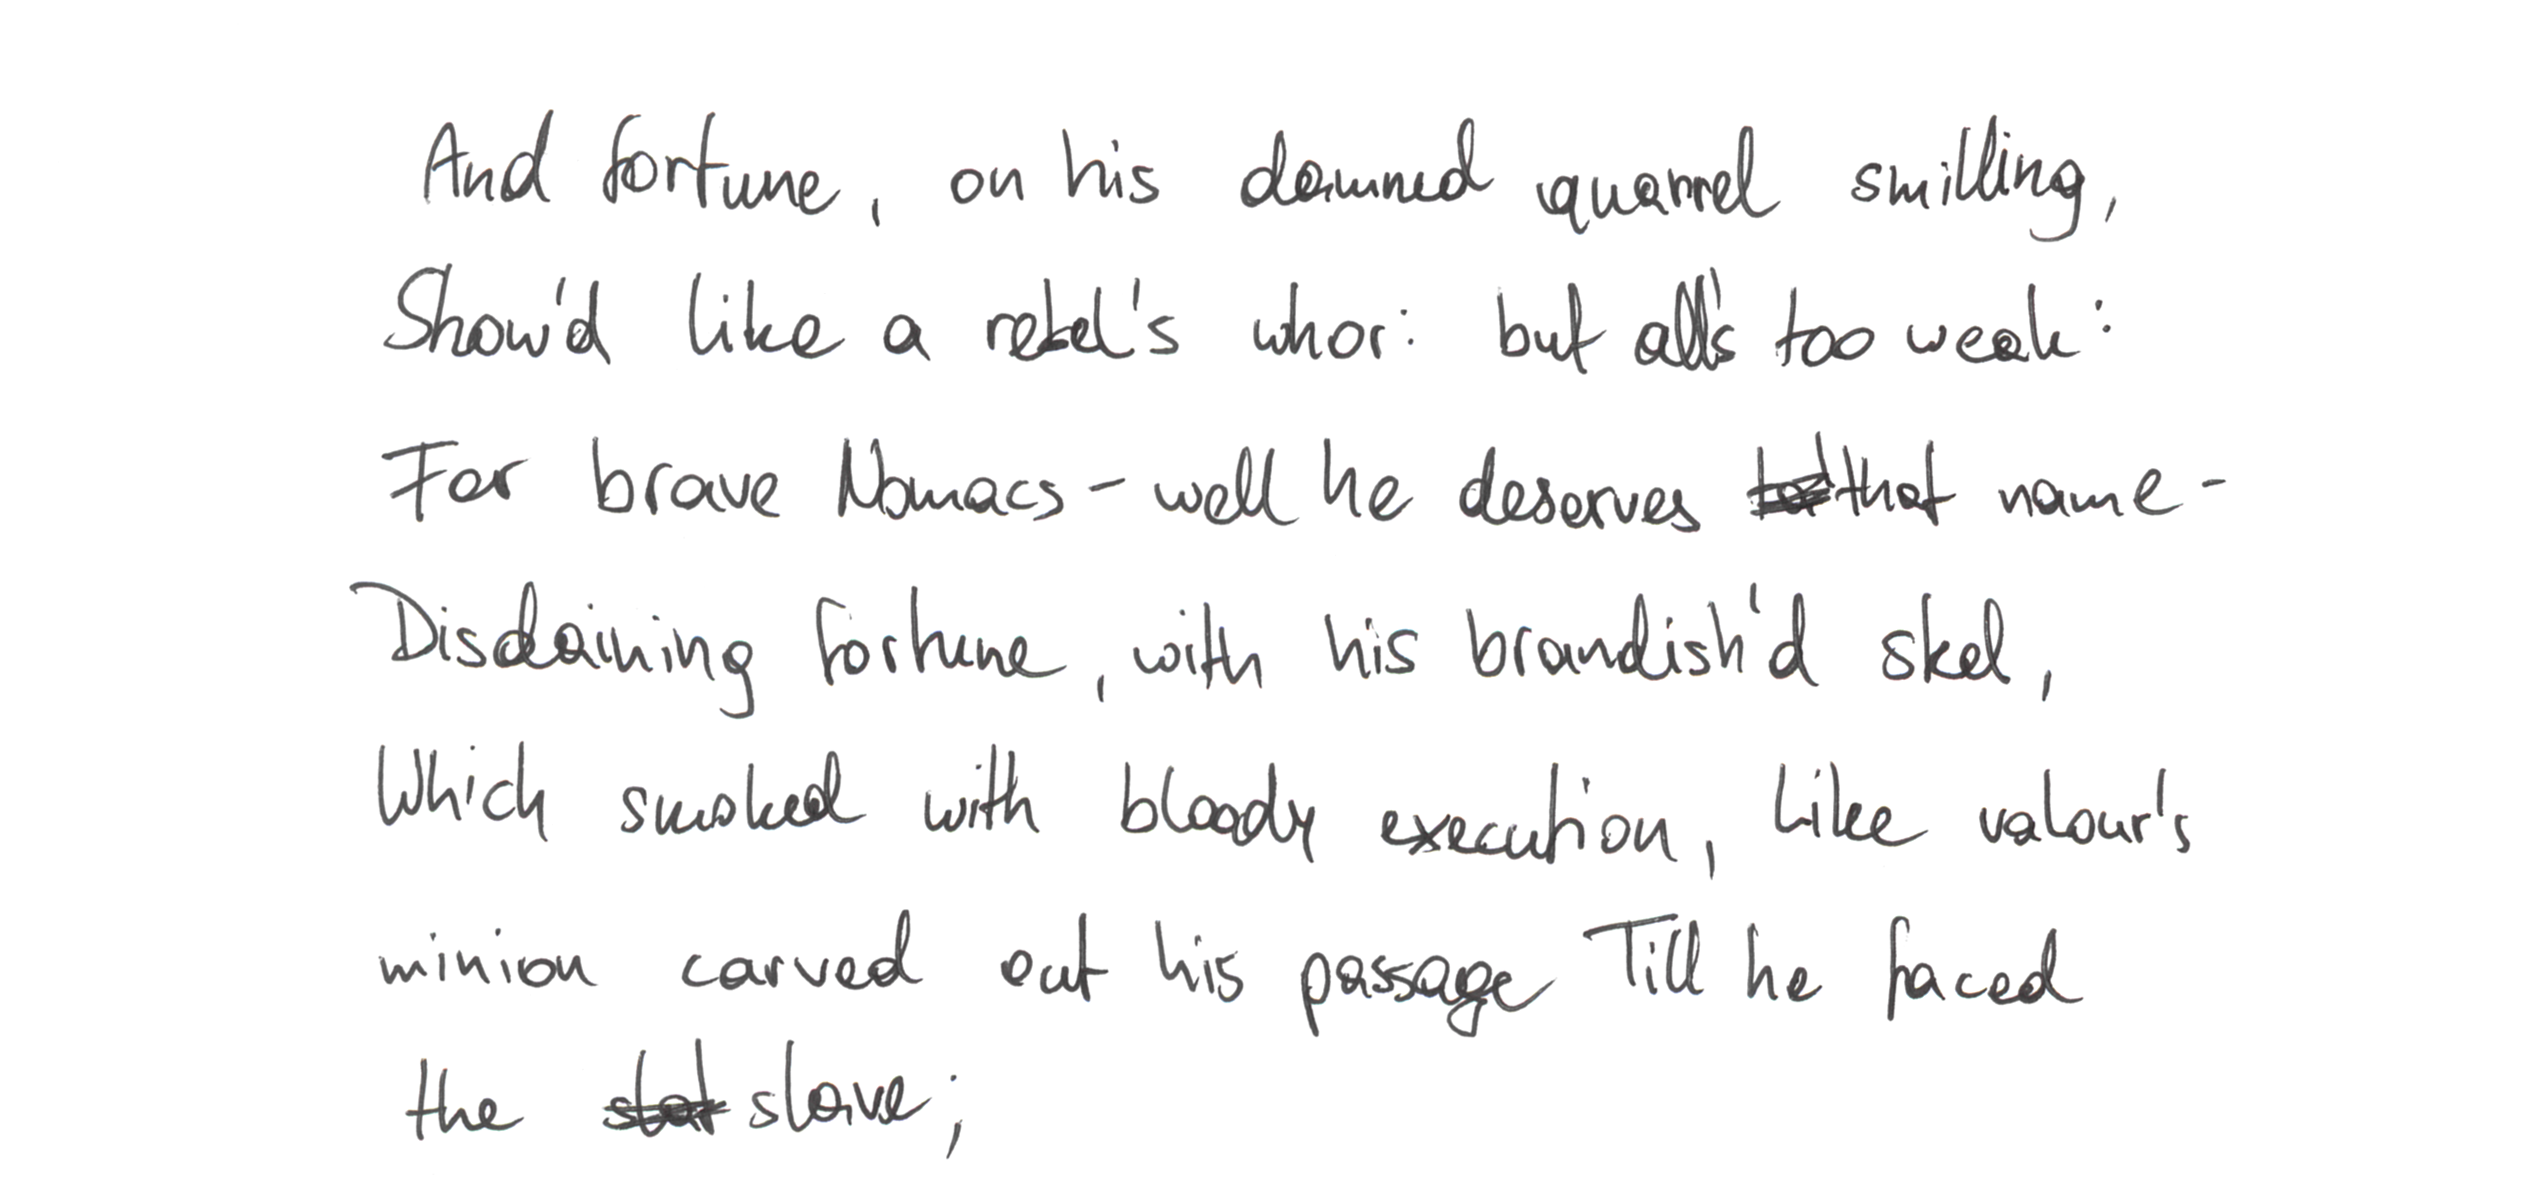 And fortune, on his damned quarrel smilling,
Show'd like a rebel's whor: but all's too weak:
For brave Nomacs - well he deserves that name -
Disdaining fortune, with his brandish'd skel,
Which smoked with bloody execution, Like valour's
minion carved out his passage Till he faced
the slave;